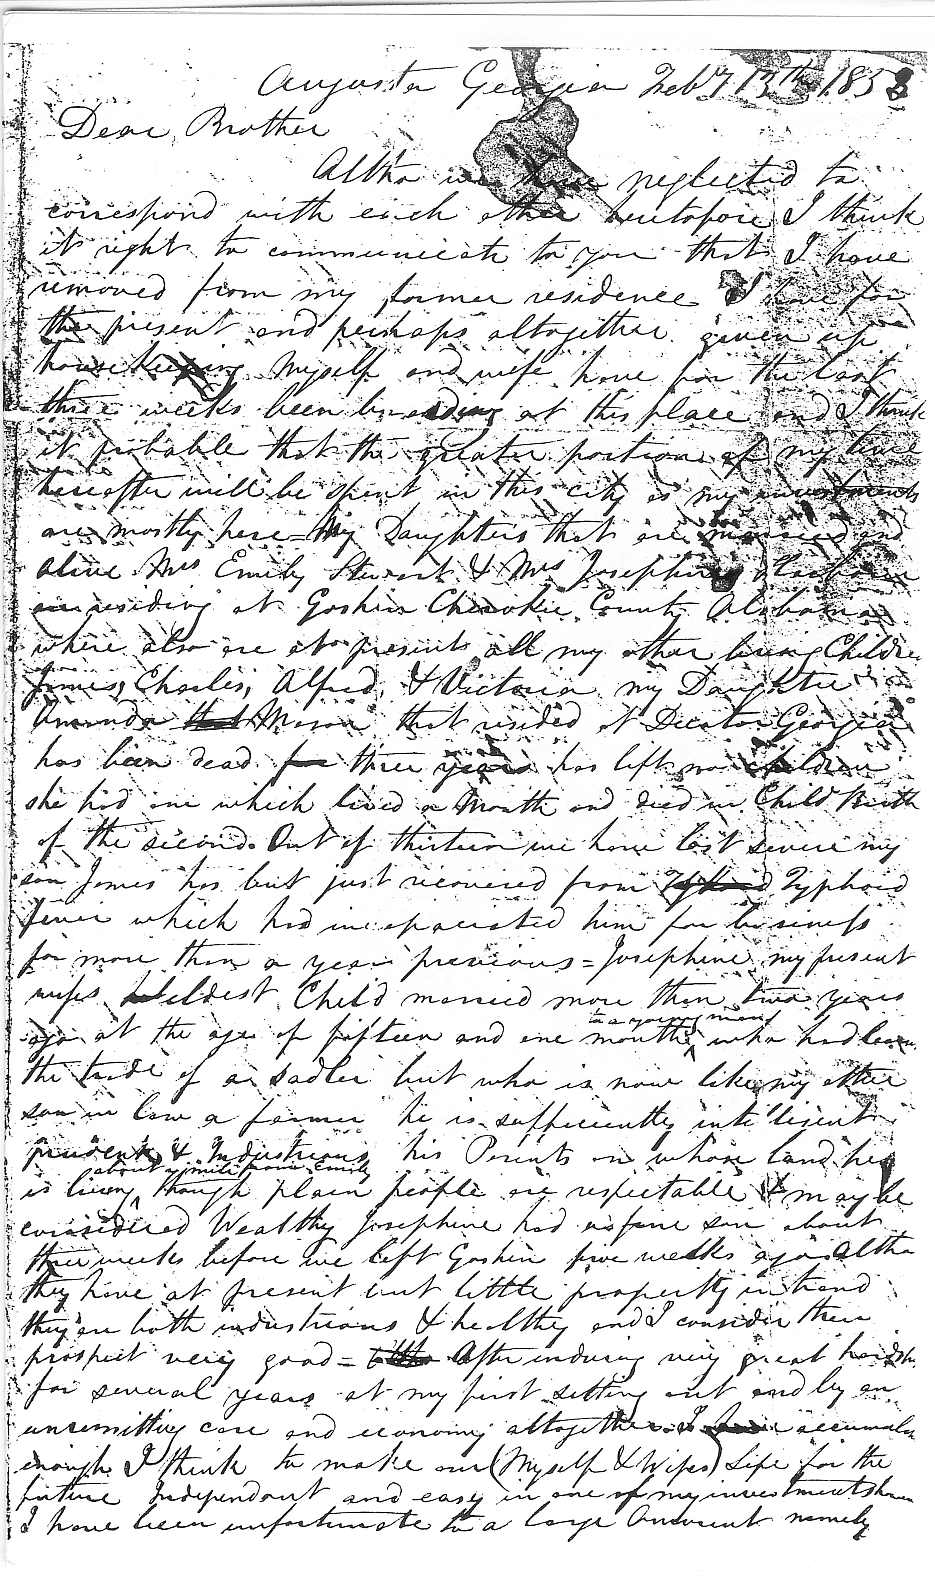 Augusta Georgia Feby 13th 185
Dear Brother
Altho we have neglected to
correspond with each other heretofore I think
it right to communicate to you that I have
removed from my former residence I have for
the present and perhaps altogether given up
house keeping Myself and wife have for the last
three weeks been boarding at this place and I think
it probable that the greater portion of my time
hereafter will be spent in this city as my investments
are mostly here My Daughters that are married and
alive Mrs Emily Stewart & Mrs Josephine
are residing at Goshen Cherokee County Alabama
where also are at present all my other living Children
James, Charles, Alfred, & Victoria my Daughter
Amanda that Mason that resided at Decatur Georgia
has been dead for three years has left no children
she had one which lived a Month and died in Child Birth
of the second. Out of thirteen we have lost seven my
son James has but just recovered from Typhoid
fever which had incapacitated him for business
for more than a year previous = Josephine my present
wifes eldest Child married more than two years
ago at the age of fifteen and one month to a young man who had learn
the trade of a sadler but who is now like my other
son in law a farmer he is sufficiently intelligent
prudent & Industrious his Parents on whose land he
is living about a mile from Emily though plain people are respectable & may be
considered Wealthy Josephine had a fine son about
three weeks before we left Goshen five weeks ago Altho
they have at present but little property in hand
they are both industrious & healthy and I consider their
prospect very good = After enduring very great hardsh
for several years at my first setting out and by an
unremitting care and economy altogether I have accumulat
enough I think to make our (Myself & Wifes) Life for the
future Independant and easy in one of my investments
I have been unfortunate to a large Amount namely